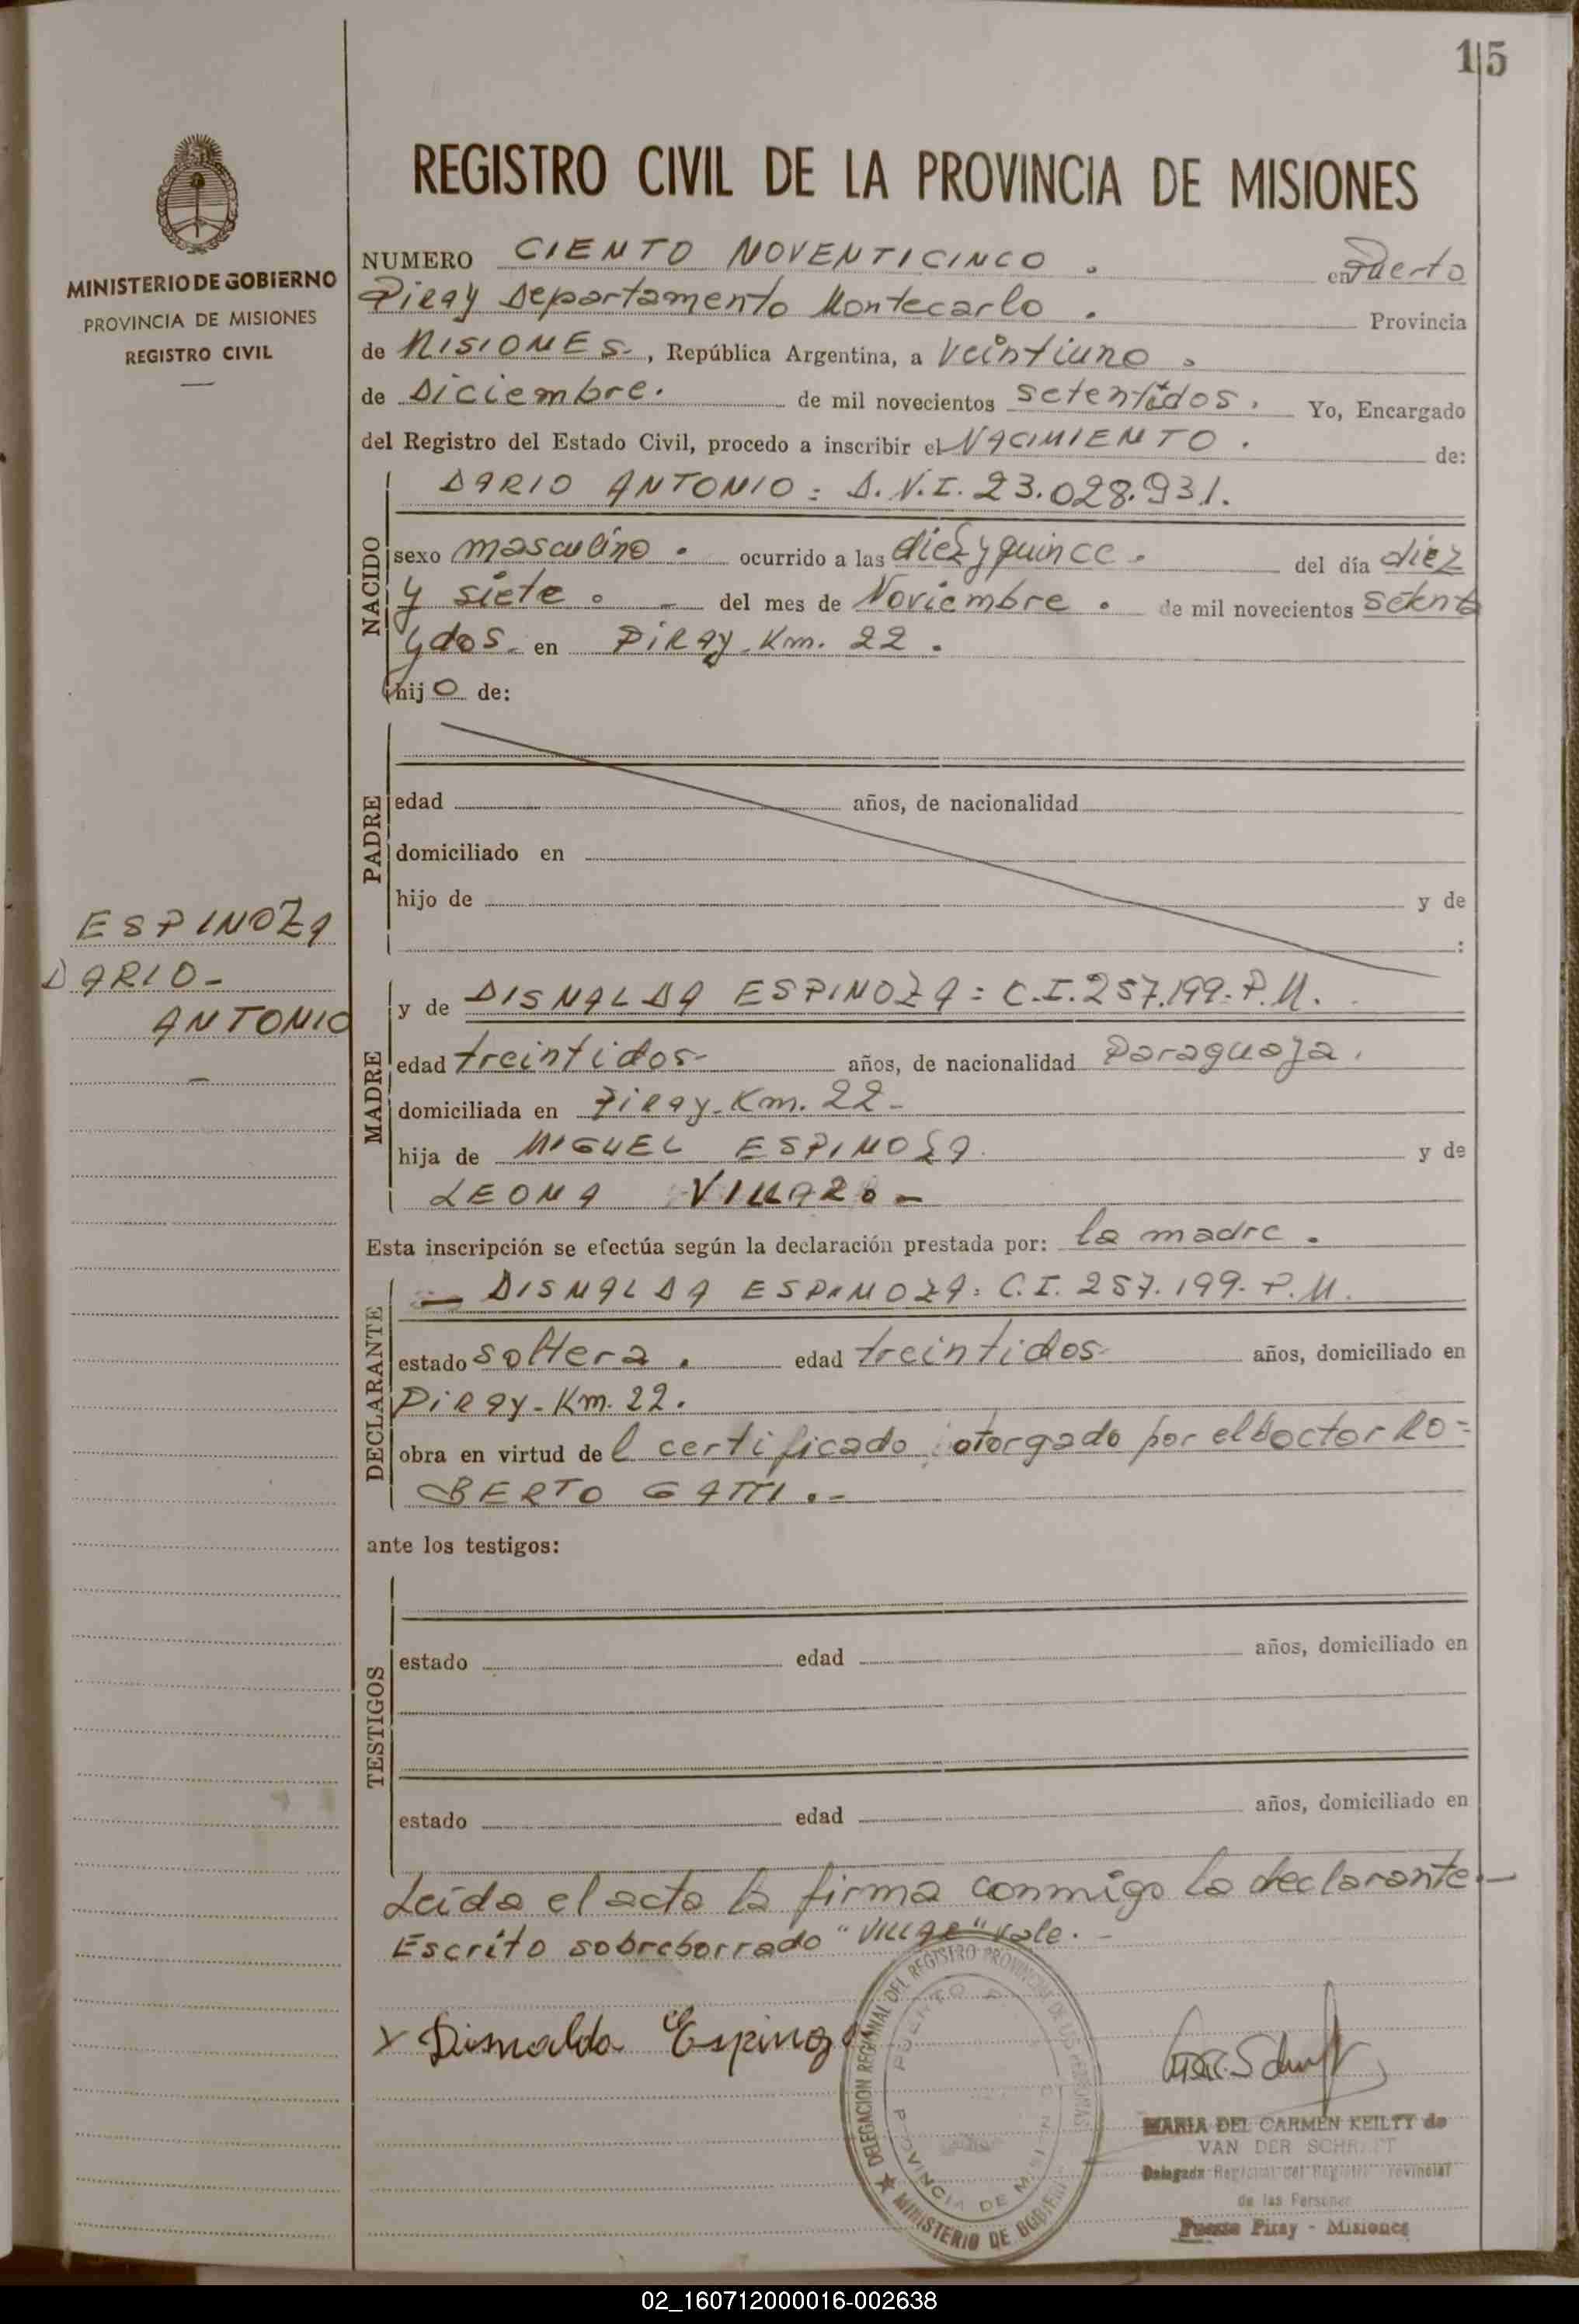 115
REGISTRO CIVIL DE LA PROVINCIA DE MISIONES
MINISTERIO DE GOBIERNO
PROVINCIA DE MISIONES
REGISTRO CIVIL
NUMERO CIENTO NOVENTICINCO . en Puerto
Piray Departamento Montecarlo . Provincia
de MISIONES-, República Argentina, a veintiuno .
de Diciembre. de mil novecientos setentidos. Yo, Encargado
del Registro del Estado Civil, procedo a inscribir el NACIMIENTO . de:
NACIDO
DARIO ANTONIO = D.N.I. 23.028.931.
sexo masculino . ocurrido a las diez y quince . del día diez
y siete . - del mes de Noviembre . de mil novecientos setenta
y dos. en Piray-Km. 22 .
hijo de:
PADRE
edad años, de nacionalidad
domiciliado en
hijo de y de
:
ESPINOZA
DARIO-
ANTONIO
-
MADRE
y de DISNALDA ESPINOZA = C.I. 257.199-P.M.
edad treintidos- años, de nacionalidad Paraguaja.
domiciliada en Piray-Km. 22-
hija de MIGUEL ESPINOZA y de
LEONA VILLAZO -
Esta inscripción se efectúa según la declaración prestada por: la madre .
DECLARANTE
- DISNALDA ESPINOZA = C.I. 257.199-P.M.
estado soltera . edad treintidos- años, domiciliado en
Piray-Km. 22.
obra en virtud del certificado otorgado por el Doctor RO=
BERTO GATTI .-
ante los testigos:
TESTIGOS
estado edad años, domiciliado en
estado edad años, domiciliado en
Leída el acta la firma conmigo la declarante.-
Escrito sobreborrado " " vale. -
x Disnalda Espinoza
DELEGACION REGIONAL DEL REGISTRO PROVINCIAL DE LAS PERSONAS
PUERTO P
PROVINCIA DE MISIONES
MINISTERIO DE GOBIERNO
MARIA DEL CARMEN KEILTY de
VAN DER SCHRAFT
Delegada Regional del Registro Provincial
de las Personas
Puerto Piray - Misiones
02_160712000016-002638